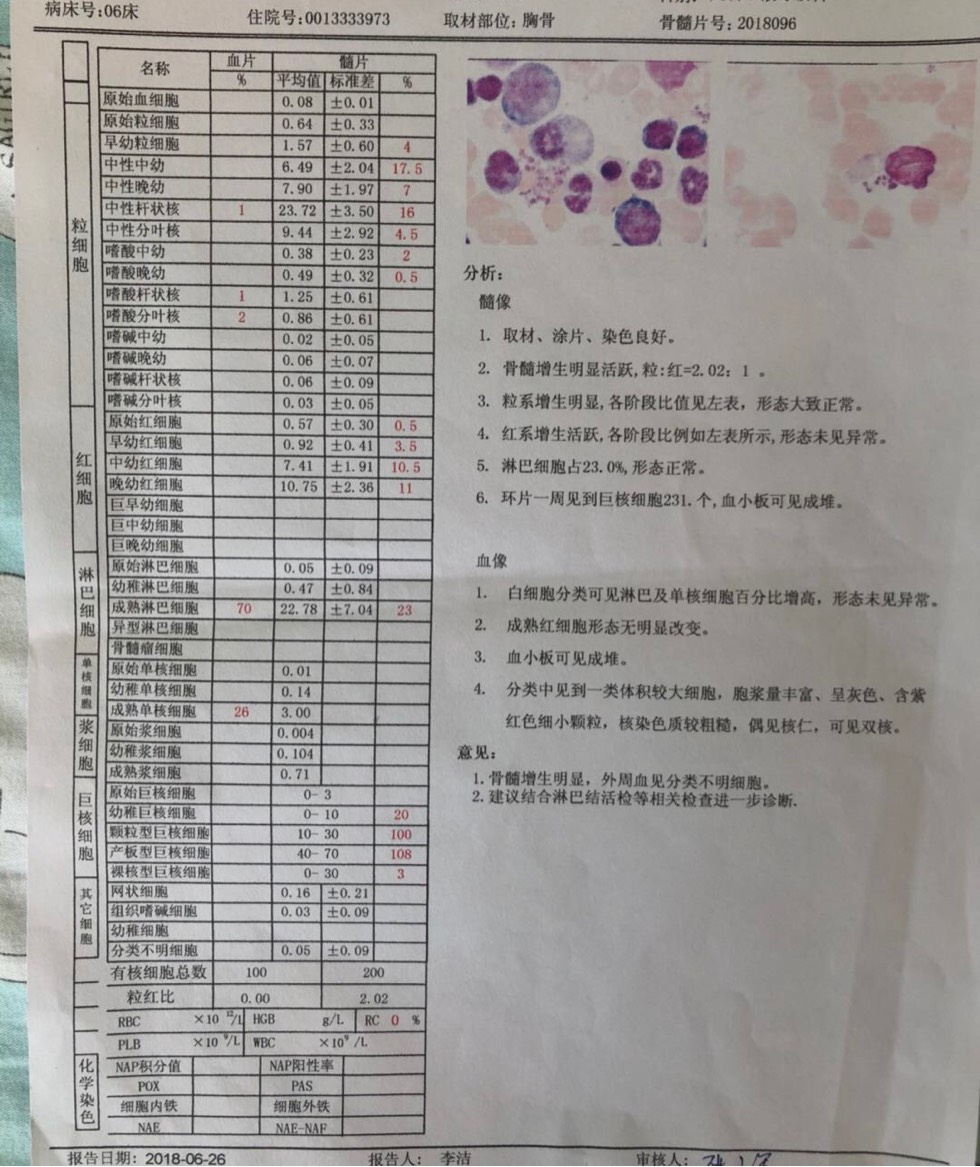 病床号:06床 住院号:0013333973 取材部位: 胸骨 骨髓片号: 2018096
名称 血片 髓片
% 平均值 标准差 %
粒细胞
原始血细胞 0.08 ±0.01
原始粒细胞 0.64 ±0.33
早幼粒细胞 1.57 ±0.60 4
中性中幼 6.49 ±2.04 17.5
中性晚幼 7.90 ±1.97 7
中性杆状核 1 23.72 ±3.50 16
中性分叶核 9.44 ±2.92 4.5
嗜酸中幼 0.38 ±0.23 2
嗜酸晚幼 0.49 ±0.32 0.5
嗜酸杆状核 1 1.25 ±0.61
嗜酸分叶核 2 0.86 ±0.61
嗜碱中幼 0.02 ±0.05
嗜碱晚幼 0.06 ±0.07
嗜碱杆状核 0.06 ±0.09
嗜碱分叶核 0.03 ±0.05
红细胞
原始红细胞 0.57 ±0.30 0.5
早幼红细胞 0.92 ±0.41 3.5
中幼红细胞 7.41 ±1.91 10.5
晚幼红细胞 10.75 ±2.36 11
巨早幼细胞
巨中幼细胞
巨晚幼细胞
淋巴细胞
原始淋巴细胞 0.05 ±0.09
幼稚淋巴细胞 0.47 ±0.84
成熟淋巴细胞 70 22.78 ±7.04 23
异型淋巴细胞
骨髓瘤细胞
单核细胞
原始单核细胞 0.01
幼稚单核细胞 0.14
成熟单核细胞 26 3.00
浆细胞
原始浆细胞 0.004
幼稚浆细胞 0.104
成熟浆细胞 0.71
巨核细胞
原始巨核细胞 0- 3
幼稚巨核细胞 0- 10 20
颗粒型巨核细胞 10- 30 100
产板型巨核细胞 40- 70 108
裸核型巨核细胞 0- 30 3
其它细胞
网状细胞 0.16 ±0.21
组织嗜碱细胞 0.03 ±0.09
幼稚细胞
分类不明细胞 0.05 ±0.09
有核细胞总数 100 200
粒红比 0.00 2.02
RBC ×10 12/L HGB g/L RC 0 %
PLB ×10 9/L WBC ×10⁹ /L
化学染色
NAP积分值 NAP阳性率
POX PAS
细胞内铁 细胞外铁
NAE NAE-NAF
分析:
髓像
1. 取材、涂片、染色良好。
2. 骨髓增生明显活跃,粒:红=2.02: 1 。
3. 粒系增生明显,各阶段比值见左表，形态大致正常。
4. 红系增生活跃,各阶段比例如左表所示,形态未见异常。
5. 淋巴细胞占23.0%,形态正常。
6. 环片一周见到巨核细胞231.个,血小板可见成堆。
血像
1. 白细胞分类可见淋巴及单核细胞百分比增高，形态未见异常。
2. 成熟红细胞形态无明显改变。
3. 血小板可见成堆。
4. 分类中见到一类体积较大细胞，胞浆量丰富、呈灰色、含紫
红色细小颗粒，核染色质较粗糙，偶见核仁，可见双核。
意见:
1.骨髓增生明显，外周血见分类不明细胞。
2.建议结合淋巴结活检等相关检查进一步诊断.
报告日期: 2018-06-26 报告人: 李洁 审核人: